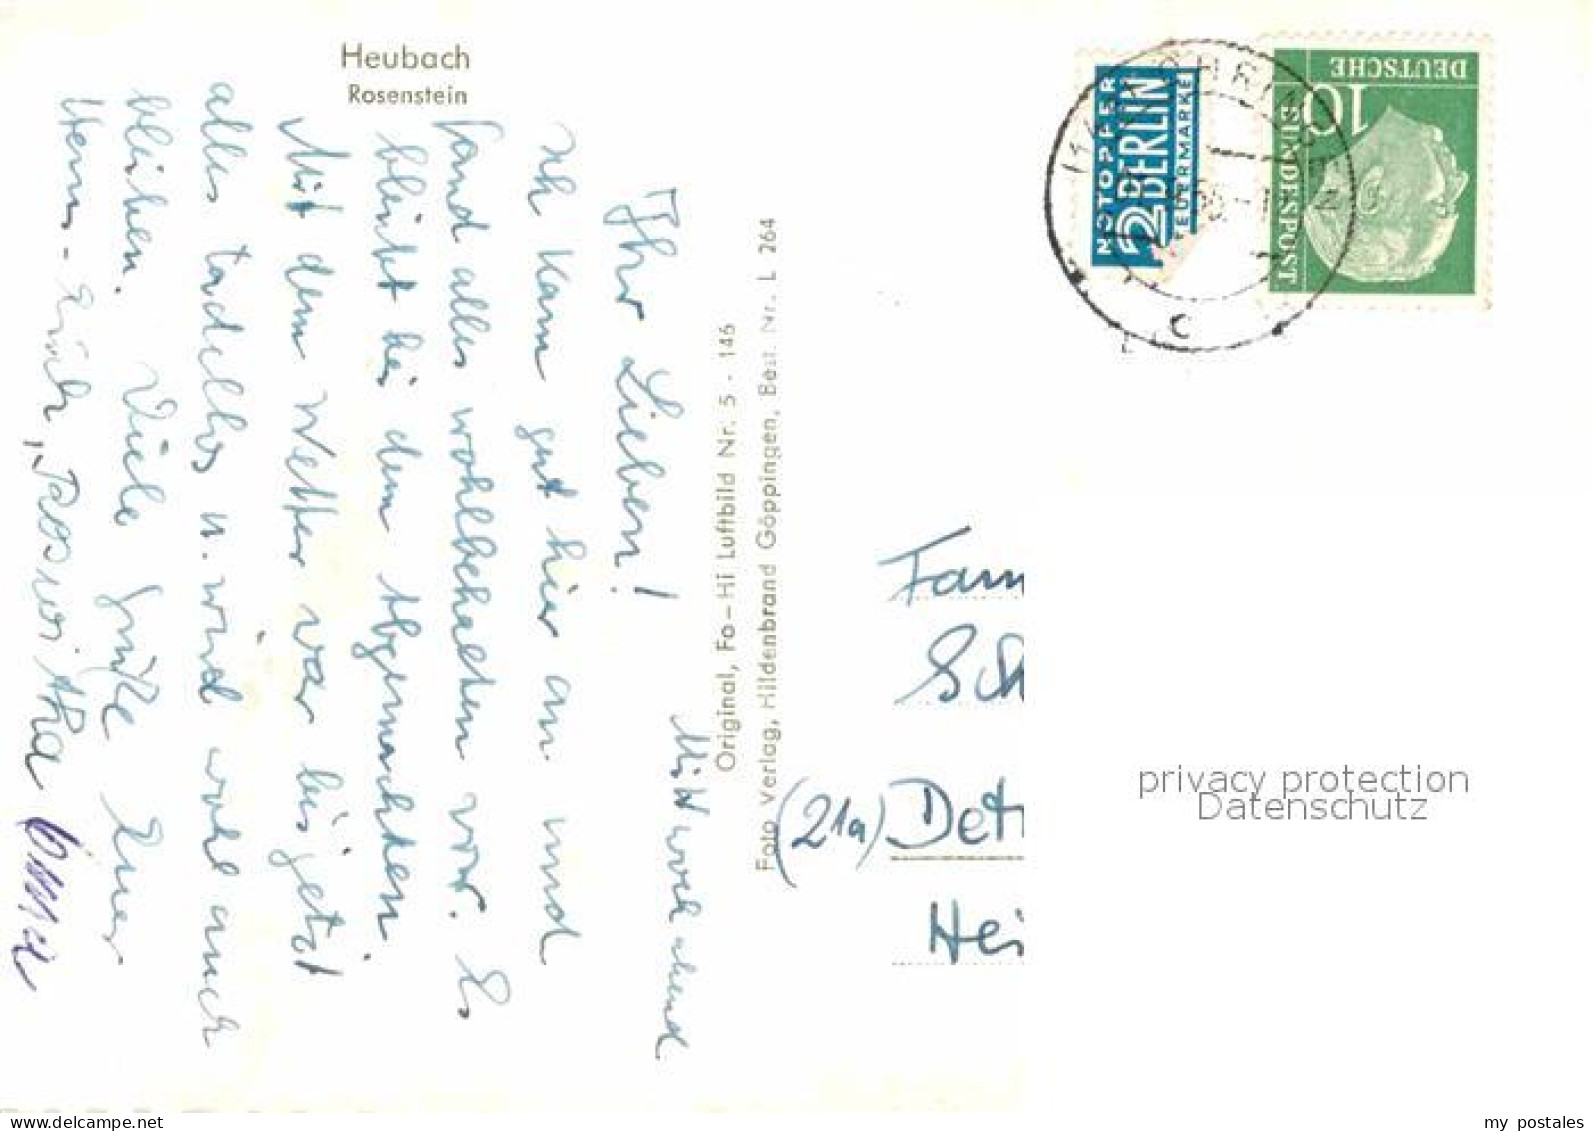 Heubach
Rosenstein
Mittwoch abend
Ihr Lieben!
Ich kam gut hier an und
fand alles wohlbehalten vor. Es
bleibt bei dem Abgemachten.
Mit dem Wetter war bis jetzt
alles tadellos u. wird wohl auch
bleiben. Viele Grüße Euer
Original, Fo-Hi Luftbild Nr. 5 - 146
Foto Verlag, Hildenbrand Göppingen, Best. Nr. L 264
NOTOPFER
2 BERLIN
STEUERMARKE
DEUTSCHE
BUNDESPOST
10
Fam
Sch
(21a) Det
Hei
privacy protection
Datenschutz
my postales